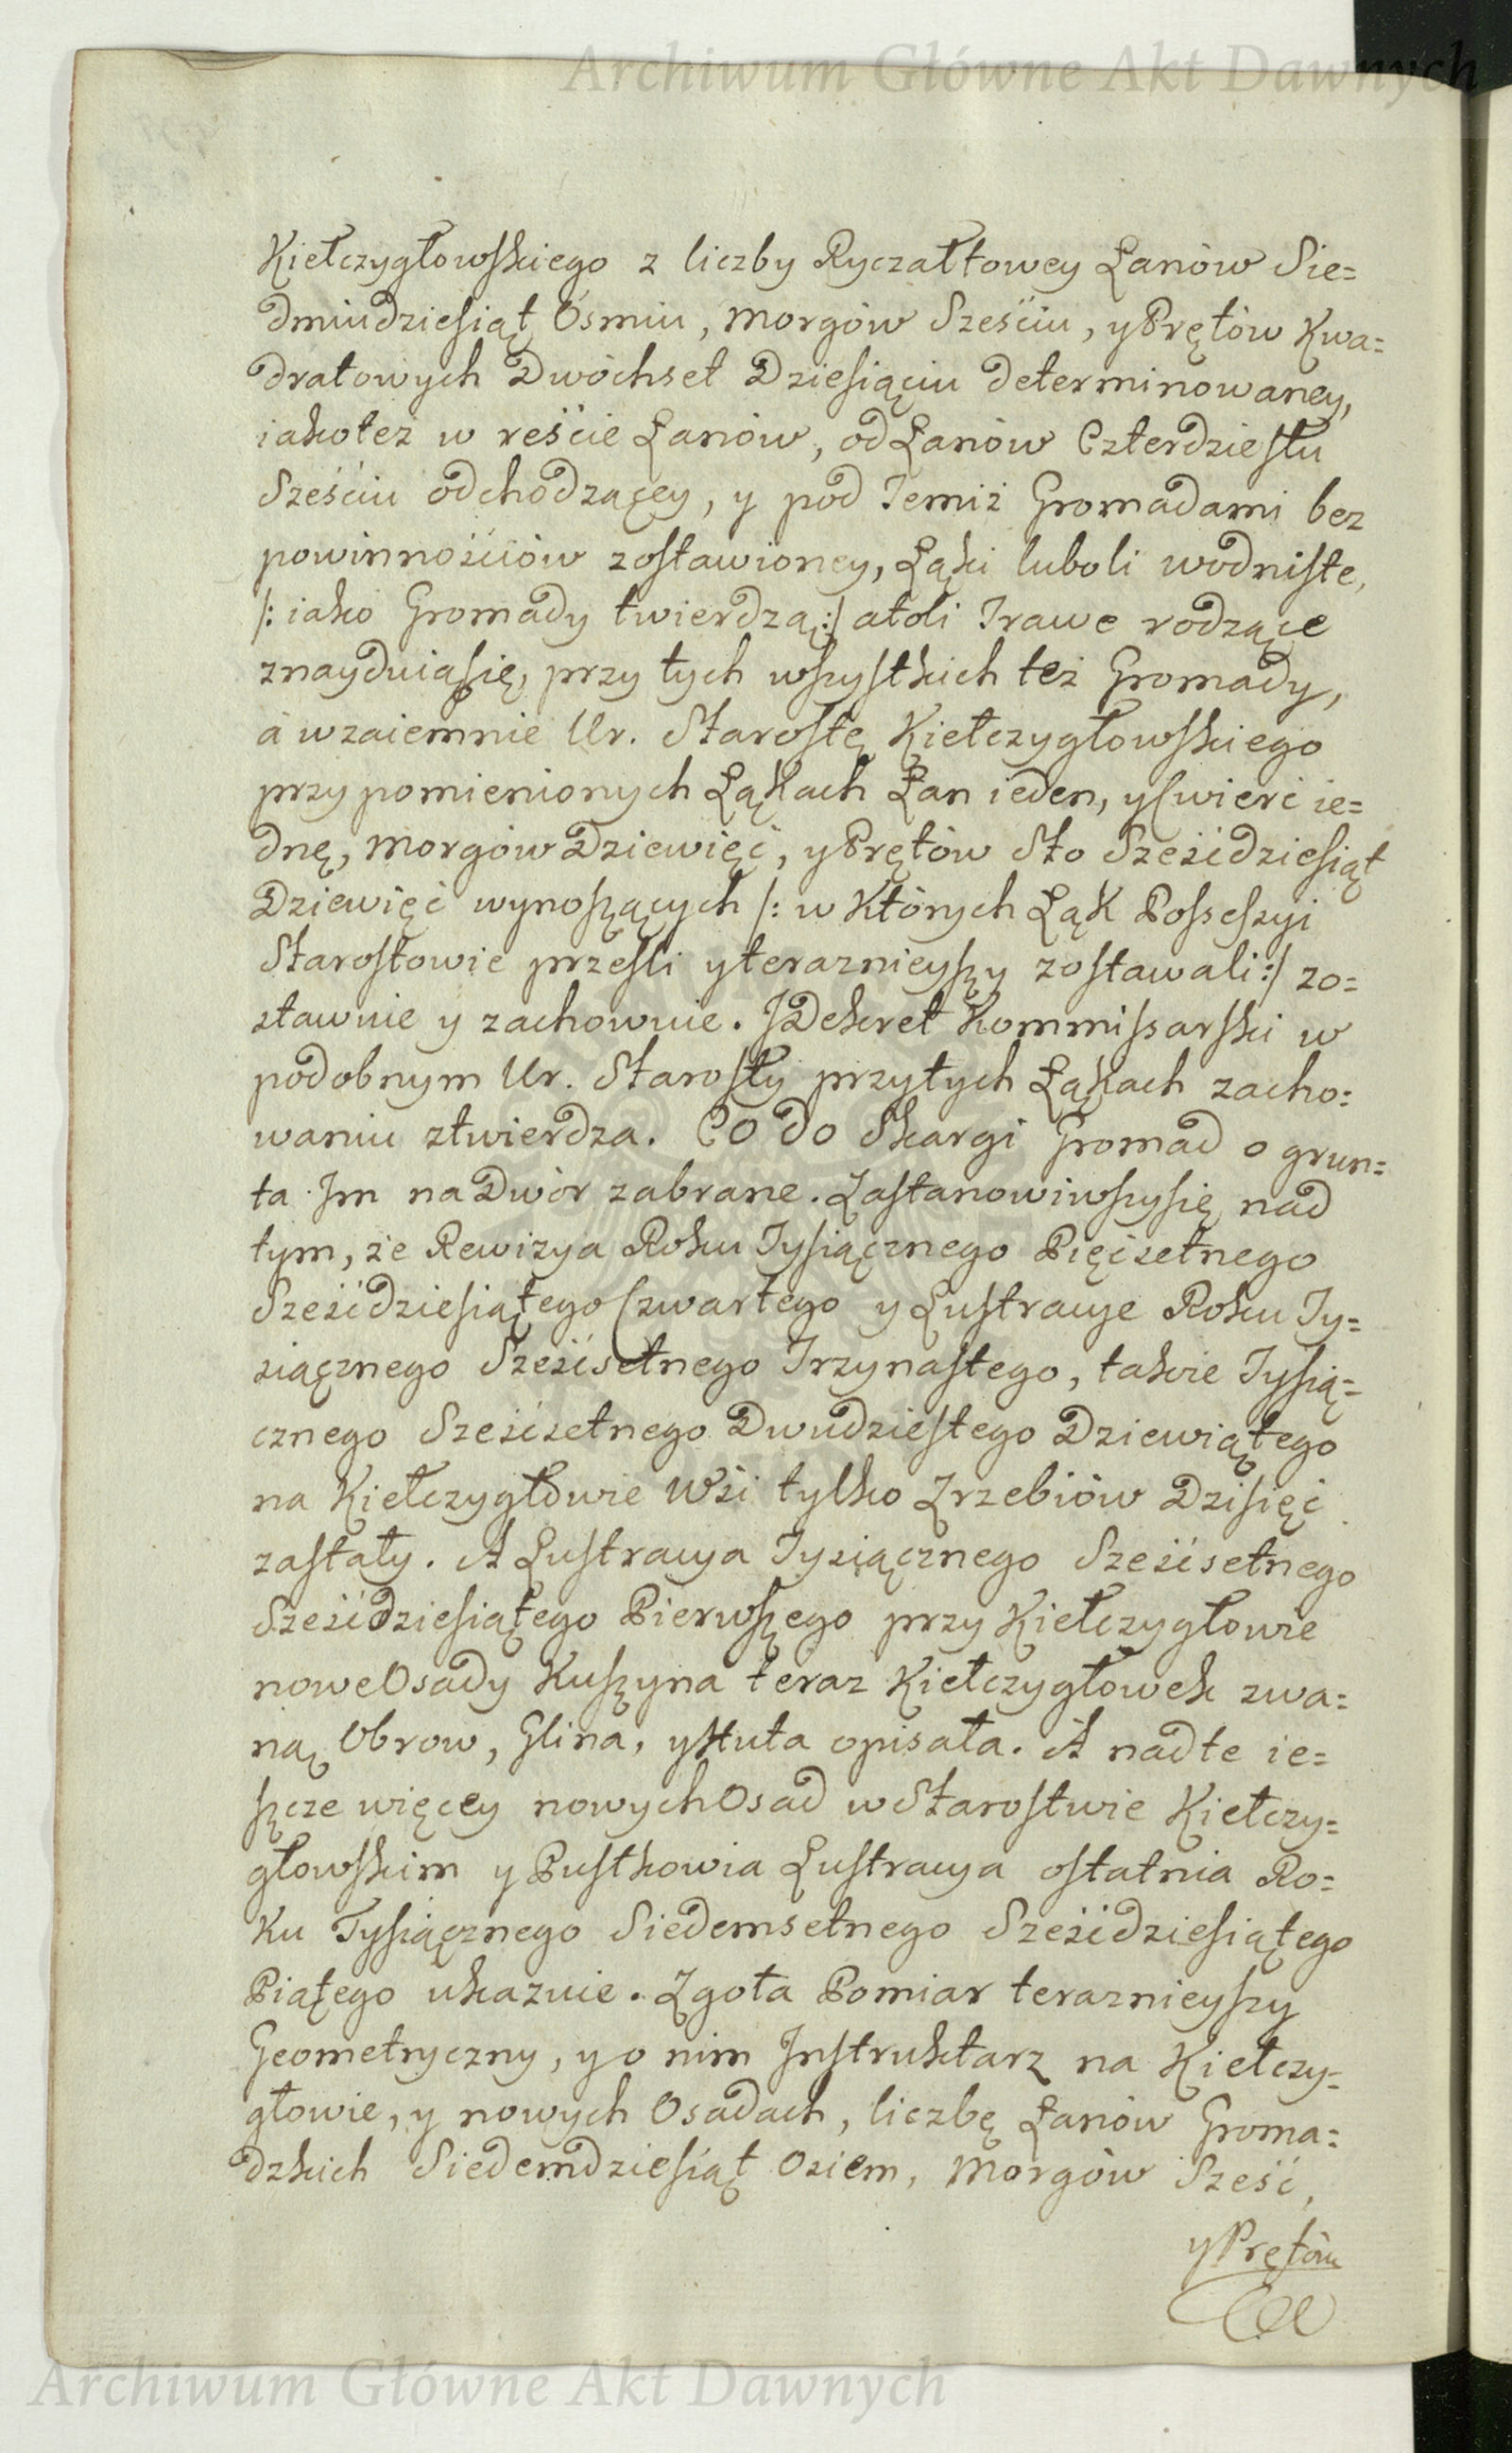 Archiwum Główne Akt Dawnych
Kiełczygłowskiego z liczby Ryczałtowey Łanów Sie=
dmiudziesiąt Ośmiu, Morgów Sześciu, y Prętów Kwa=
dratowych Dwóchset Dziesiąciu determinowaney,
iakoteż w reście Łanów, od Łanów Czterdziestu
Sześciu odchodzącey, y pod Temiż Gromadami bez
powinnościów zostawioney, Łąki luboli wodniste,
/: iako Gromady twierdzą :/ atoli Trawe rodzące
znayduiąsię, przy tych wszystkich też Gromady,
á wzaiemnie Ur. Starostę Kiełczygłowskiego
przy pomienionych Łąkach Łan ieden, y Cwierć ie=
dnę, Morgów Dziewięć, y Prętów Sto Sześćdziesiąt
Dziewięć wynoszących /: w Których Łąk Possessyi
Starostowie przeszli y teraznieyszy zostawali :/ zo=
stawuie y zachowuie. I Dekret Kommissarski w
podobnym Ur. Starosty przytych Łąkach zacho=
waniu ztwierdza. CO DO Skargi Gromad o grun=
ta Im na Dwór zabrane. Zastanowiwszysię nad
tym, że Rewizya Roku Tysiącznego Pięćsetnego
Sześćdziesiątego Czwartego y Lustracye Roku Ty=
siącznego Sześćsetnego Trzynastego, takoie Tysią=
cznego Sześćsetnego Dwudziestego Dziewiątego
na Kiełczygłowie Wśi tylko Zrzebiów Dzisięć
zastały. A Lustracya Tysiącznego Sześćsetnego
Sześćdziesiątego Pierwszego przy Kiełczygłowie
nowe Osady Kuszyna teraz Kiełczygłówek zwa=
ną, Obrow, Glina, y Huta opisała. A nad te ie=
szcze więcey nowych Osad w Starostwie Kiełczy=
głowskim y Pustkowia Lustracya ostatnia Ro=
ku Tysiącznego Siedemsetnego Sześćdziesiątego
Piątego ukazuie. Zgoła Pomiar teraznieyszy
Geometryczny, y o nim Instruktarz na Kiełczy=
głowie, y nowych Osadach, liczbę Łanów Groma=
dzkich Siedemdziesiąt Osiem, Morgów Sześć,
y Prętów
Archiwum Główne Akt Dawnych